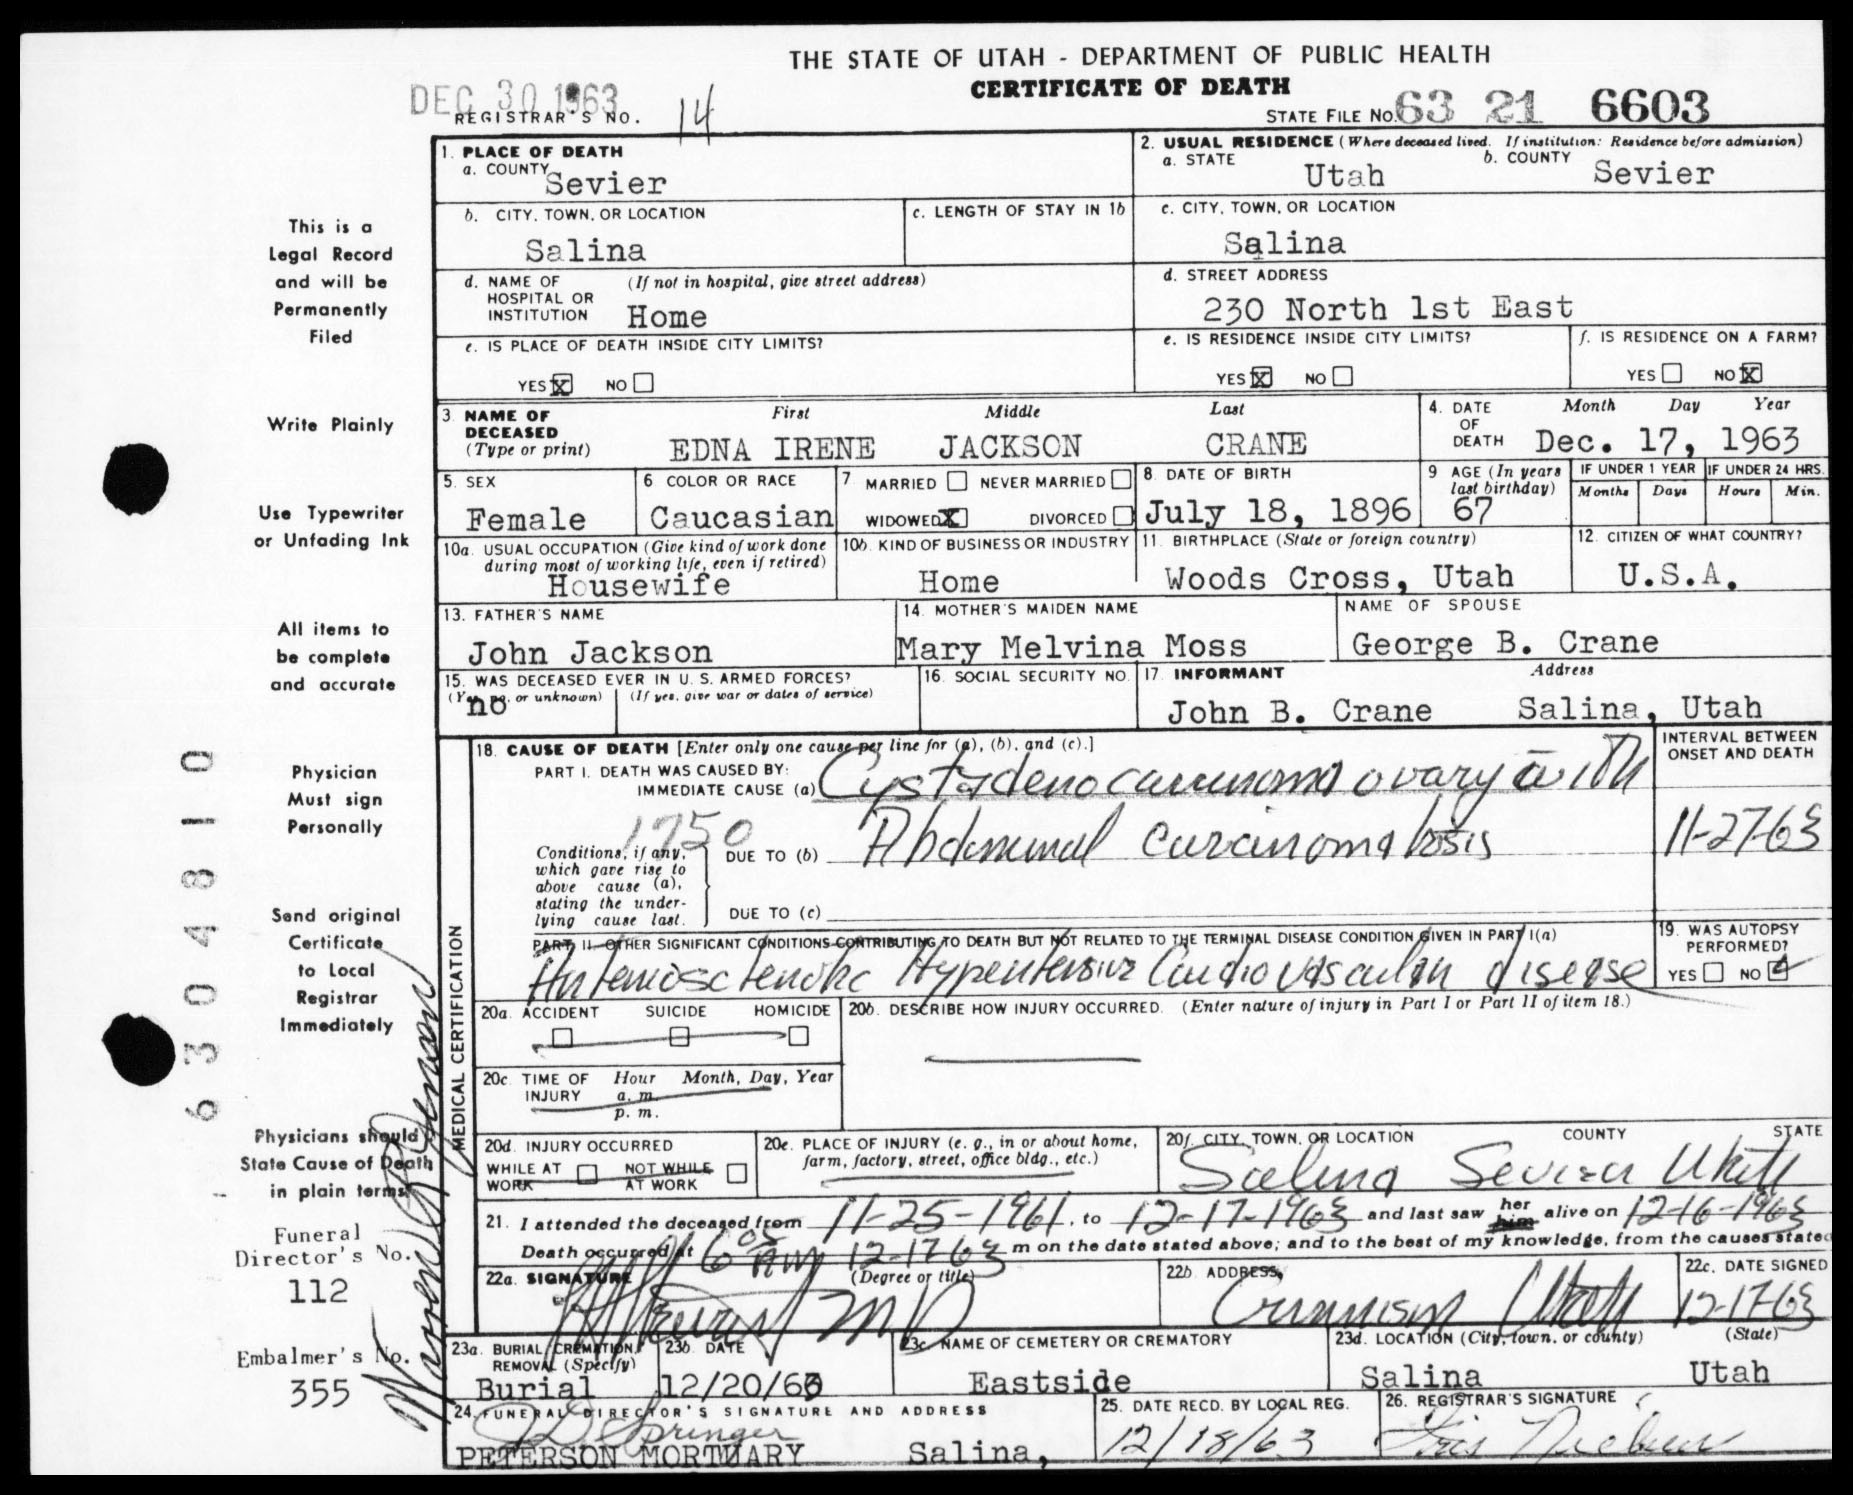 THE STATE OF UTAH - DEPARTMENT OF PUBLIC HEALTH
CERTIFICATE OF DEATH
DEC 30 1963
REGISTRAR'S NO. 14
STATE FILE NO. 63 21 6603
This is a
Legal Record
and will be
Permanently
Filed
Write Plainly
Use Typewriter
or Unfading Ink
All items to
be complete
and accurate
Physician
Must sign
Personally
Send original
Certificate
to Local
Registrar
Immediately
Physicians should
State Cause of Death
in plain terms
Funeral
Director's No.
112
Embalmer's No.
355
6304810
1. PLACE OF DEATH
a. COUNTY Sevier
b. CITY, TOWN, OR LOCATION
Salina
c. LENGTH OF STAY IN 1b
d. NAME OF HOSPITAL OR INSTITUTION (If not in hospital, give street address)
Home
e. IS PLACE OF DEATH INSIDE CITY LIMITS?
YES X NO
2. USUAL RESIDENCE (Where deceased lived. If institution: Residence before admission)
a. STATE Utah b. COUNTY Sevier
c. CITY, TOWN, OR LOCATION
Salina
d. STREET ADDRESS
230 North 1st East
e. IS RESIDENCE INSIDE CITY LIMITS?
YES X NO
f. IS RESIDENCE ON A FARM?
YES NO X
3. NAME OF DECEASED (Type or print) First Middle Last
EDNA IRENE JACKSON CRANE
4. DATE OF DEATH Month Day Year
Dec. 17, 1963
5. SEX
Female
6 COLOR OR RACE
Caucasian
7 MARRIED NEVER MARRIED
WIDOWED X DIVORCED
8. DATE OF BIRTH
July 18, 1896
9 AGE (In years last birthday)
67
IF UNDER 1 YEAR
Months Days
IF UNDER 24 HRS.
Hours Min.
10a. USUAL OCCUPATION (Give kind of work done during most of working life, even if retired)
Housewife
10b. KIND OF BUSINESS OR INDUSTRY
Home
11. BIRTHPLACE (State or foreign country)
Woods Cross, Utah
12. CITIZEN OF WHAT COUNTRY?
U.S.A.
13. FATHER'S NAME
John Jackson
14. MOTHER'S MAIDEN NAME
Mary Melvina Moss
NAME OF SPOUSE
George B. Crane
15. WAS DECEASED EVER IN U. S. ARMED FORCES?
(Yes, no, or unknown) (If yes, give war or dates of service)
no
16. SOCIAL SECURITY NO.
17. INFORMANT Address
John B. Crane Salina, Utah
MEDICAL CERTIFICATION
18. CAUSE OF DEATH [Enter only one cause per line for (a), (b), and (c).]
PART I. DEATH WAS CAUSED BY:
IMMEDIATE CAUSE (a) Cystadenocarcinoma ovary with
1750
Conditions, if any, which gave rise to above cause (a), stating the underlying cause last.
DUE TO (b) Abdominal carcinomatosis
DUE TO (c)
INTERVAL BETWEEN ONSET AND DEATH
11-27-63
PART II. OTHER SIGNIFICANT CONDITIONS CONTRIBUTING TO DEATH BUT NOT RELATED TO THE TERMINAL DISEASE CONDITION GIVEN IN PART I(a)
Arteriosclerotic Hypertensive Cardiovascular disease
19. WAS AUTOPSY PERFORMED?
YES NO
20a. ACCIDENT SUICIDE HOMICIDE
20b. DESCRIBE HOW INJURY OCCURRED. (Enter nature of injury in Part I or Part II of item 18.)
20c. TIME OF INJURY Hour Month, Day, Year
a. m.
p. m.
20d. INJURY OCCURRED
WHILE AT WORK NOT WHILE AT WORK
20e. PLACE OF INJURY (e. g., in or about home, farm, factory, street, office bldg., etc.)
20f. CITY, TOWN, OR LOCATION COUNTY STATE
Salina Sevier Utah
21. I attended the deceased from 11-25-1961, to 12-17-1963 and last saw her him alive on 12-16-1963
Death occurred at 6 05 AM 12-17-63 m on the date stated above; and to the best of my knowledge, from the causes stated
22a. SIGNATURE (Degree or title)
MD
22b. ADDRESS
Gunnison Utah
22c. DATE SIGNED
12-17-63
23a. BURIAL, CREMATION, REMOVAL (Specify)
Burial
23b. DATE
12/20/63
23c. NAME OF CEMETERY OR CREMATORY
Eastside
23d. LOCATION (City, town, or county) (State)
Salina Utah
24. FUNERAL DIRECTOR'S SIGNATURE AND ADDRESS
Springer
PETERSON MORTUARY Salina,
25. DATE RECD. BY LOCAL REG.
12/18/63
26. REGISTRAR'S SIGNATURE
Iris